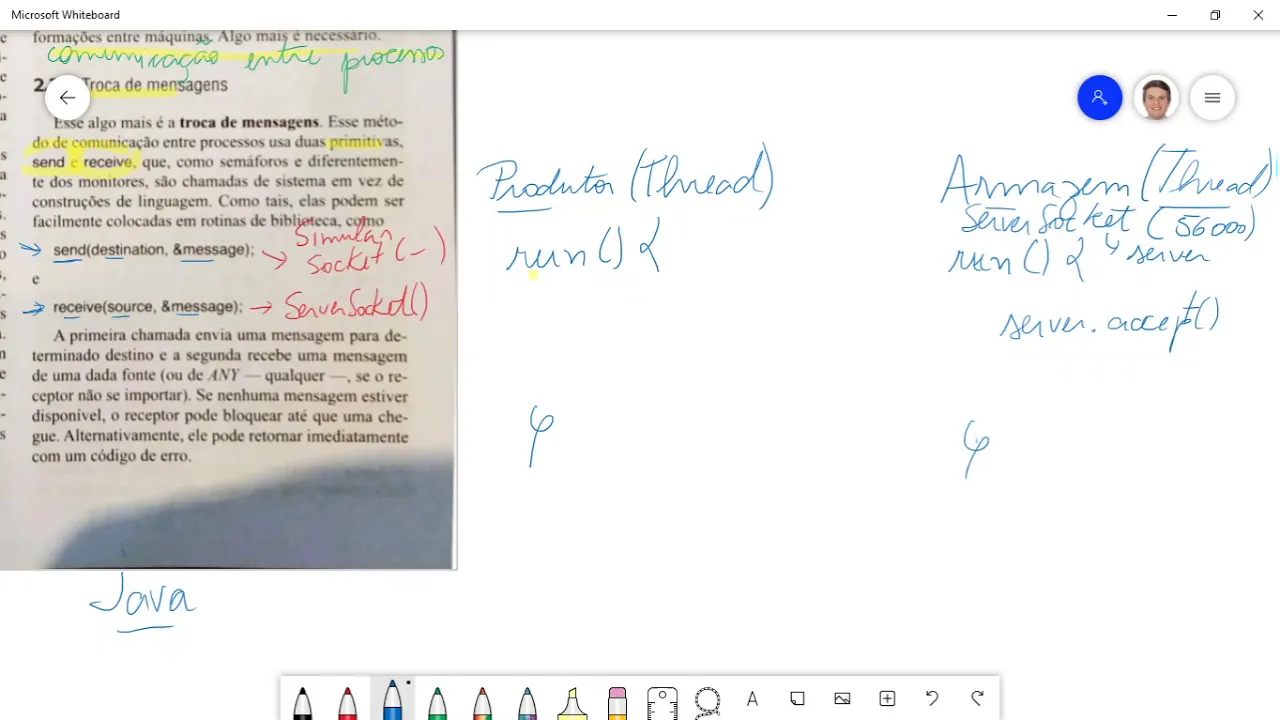 Microsoft Whiteboard
formações entre máquinas. Algo mais é necessário.
comunicação entre processos
Troca de mensagens
Esse algo mais é a troca de mensagens. Esse méto-
do de comunicação entre processos usa duas primitivas,
send e receive, que, como semáforos e diferentemen-
te dos monitores, são chamadas de sistema em vez de
construções de linguagem. Como tais, elas podem ser
facilmente colocadas em rotinas de biblioteca, como
send(destination, &message);
Simular
Socket (-)
e
receive(source, &message);
ServerSocket()
A primeira chamada envia uma mensagem para de-
terminado destino e a segunda recebe uma mensagem
de uma dada fonte (ou de ANY — qualquer —, se o re-
ceptor não se importar). Se nenhuma mensagem estiver
disponível, o receptor pode bloquear até que uma che-
gue. Alternativamente, ele pode retornar imediatamente
com um código de erro.
Java
Produtor (Thread)
run() {
}
Armazem (Thread)
ServerSocket (56000)
run() { ↳ server
server.accept()
}
A